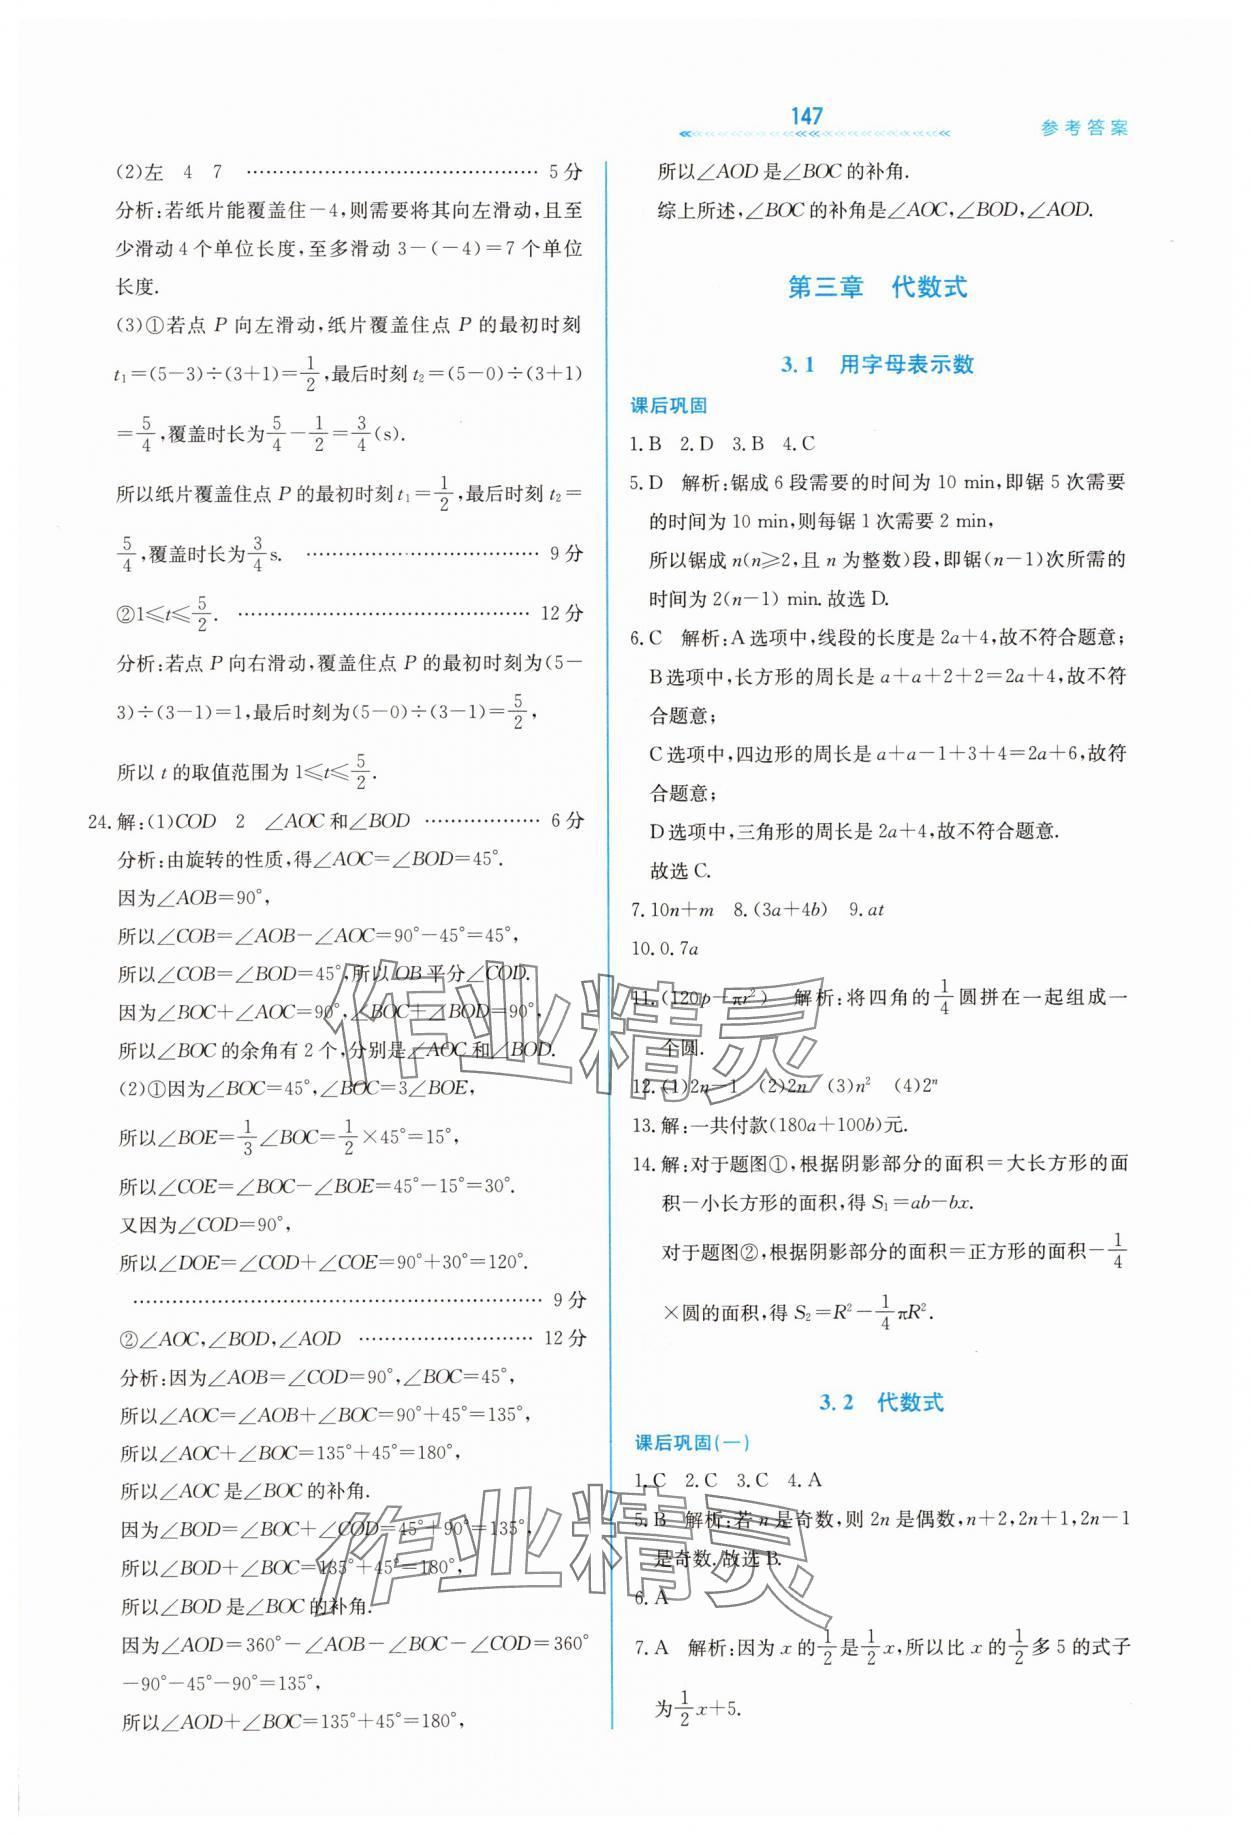 147
参考答案
(2)左 4 7 ……………………………… 5分
分析:若纸片能覆盖住－4,则需要将其向左滑动,且至
少滑动4个单位长度,至多滑动3－(－4)＝7个单位
长度.
(3)①若点P向左滑动,纸片覆盖住点P的最初时刻
t₁＝(5－3)÷(3＋1)＝1/2,最后时刻t₂＝(5－0)÷(3＋1)
＝5/4,覆盖时长为5/4－1/2＝3/4(s).
所以纸片覆盖住点P的最初时刻t₁＝1/2,最后时刻t₂＝
5/4,覆盖时长为3/4s. ……………………… 9分
②1≤t≤5/2. ……………………………… 12分
分析:若点P向右滑动,覆盖住点P的最初时刻为(5－
3)÷(3－1)＝1,最后时刻为(5－0)÷(3－1)＝5/2,
所以t的取值范围为1≤t≤5/2.
24.解:(1)COD 2 ∠AOC和∠BOD ……………… 6分
分析:由旋转的性质,得∠AOC＝∠BOD＝45°.
因为∠AOB＝90°,
所以∠COB＝∠AOB－∠AOC＝90°－45°＝45°,
所以∠COB＝∠BOD＝45°,所以OB平分∠COD.
因为∠BOC＋∠AOC＝90°,∠BOC＋∠BOD＝90°,
所以∠BOC的余角有2个,分别是∠AOC和∠BOD.
(2)①因为∠BOC＝45°,∠BOC＝3∠BOE,
所以∠BOE＝1/3∠BOC＝1/2×45°＝15°,
所以∠COE＝∠BOC－∠BOE＝45°－15°＝30°.
又因为∠COD＝90°,
所以∠DOE＝∠COD＋∠COE＝90°＋30°＝120°.
……………………………………………… 9分
②∠AOC,∠BOD,∠AOD …………………… 12分
分析:因为∠AOB＝∠COD＝90°,∠BOC＝45°,
所以∠AOC＝∠AOB＋∠BOC＝90°＋45°＝135°,
所以∠AOC＋∠BOC＝135°＋45°＝180°,
所以∠AOC是∠BOC的补角.
因为∠BOD＝∠BOC＋∠COD＝45°＋90°＝135°,
所以∠BOD＋∠BOC＝135°＋45°＝180°,
所以∠BOD是∠BOC的补角.
因为∠AOD＝360°－∠AOB－∠BOC－∠COD＝360°
－90°－45°－90°＝135°,
所以∠AOD＋∠BOC＝135°＋45°＝180°,
所以∠AOD是∠BOC的补角.
综上所述,∠BOC的补角是∠AOC,∠BOD,∠AOD.
第三章 代数式
3.1 用字母表示数
课后巩固
1.B 2.D 3.B 4.C
5.D 解析:锯成6段需要的时间为10 min,即锯5次需要
的时间为10 min,则每锯1次需要2 min,
所以锯成n(n≥2,且n为整数)段,即锯(n－1)次所需的
时间为2(n－1) min.故选D.
6.C 解析:A选项中,线段的长度是2a＋4,故不符合题意;
B选项中,长方形的周长是a＋a＋2＋2＝2a＋4,故不符
合题意;
C选项中,四边形的周长是a＋a－1＋3＋4＝2a＋6,故符
合题意;
D选项中,三角形的周长是2a＋4,故不符合题意.
故选C.
7.10n＋m 8.(3a＋4b) 9.at
10.0.7a
11.(120p－πr²) 解析:将四角的1/4圆拼在一起组成一
个圆.
12.(1)2n－1 (2)2n (3)n² (4)2ⁿ
13.解:一共付款(180a＋100b)元.
14.解:对于题图①,根据阴影部分的面积＝大长方形的面
积－小长方形的面积,得S₁＝ab－bx.
对于题图②,根据阴影部分的面积＝正方形的面积－1/4
×圆的面积,得S₂＝R²－1/4πR².
3.2 代数式
课后巩固(一)
1.C 2.C 3.C 4.A
5.B 解析:若n是奇数,则2n是偶数,n＋2,2n＋1,2n－1
是奇数.故选B.
6.A
7.A 解析:因为x的1/2是1/2x,所以比x的1/2多5的式子
为1/2x＋5.
作业精灵
作业精灵